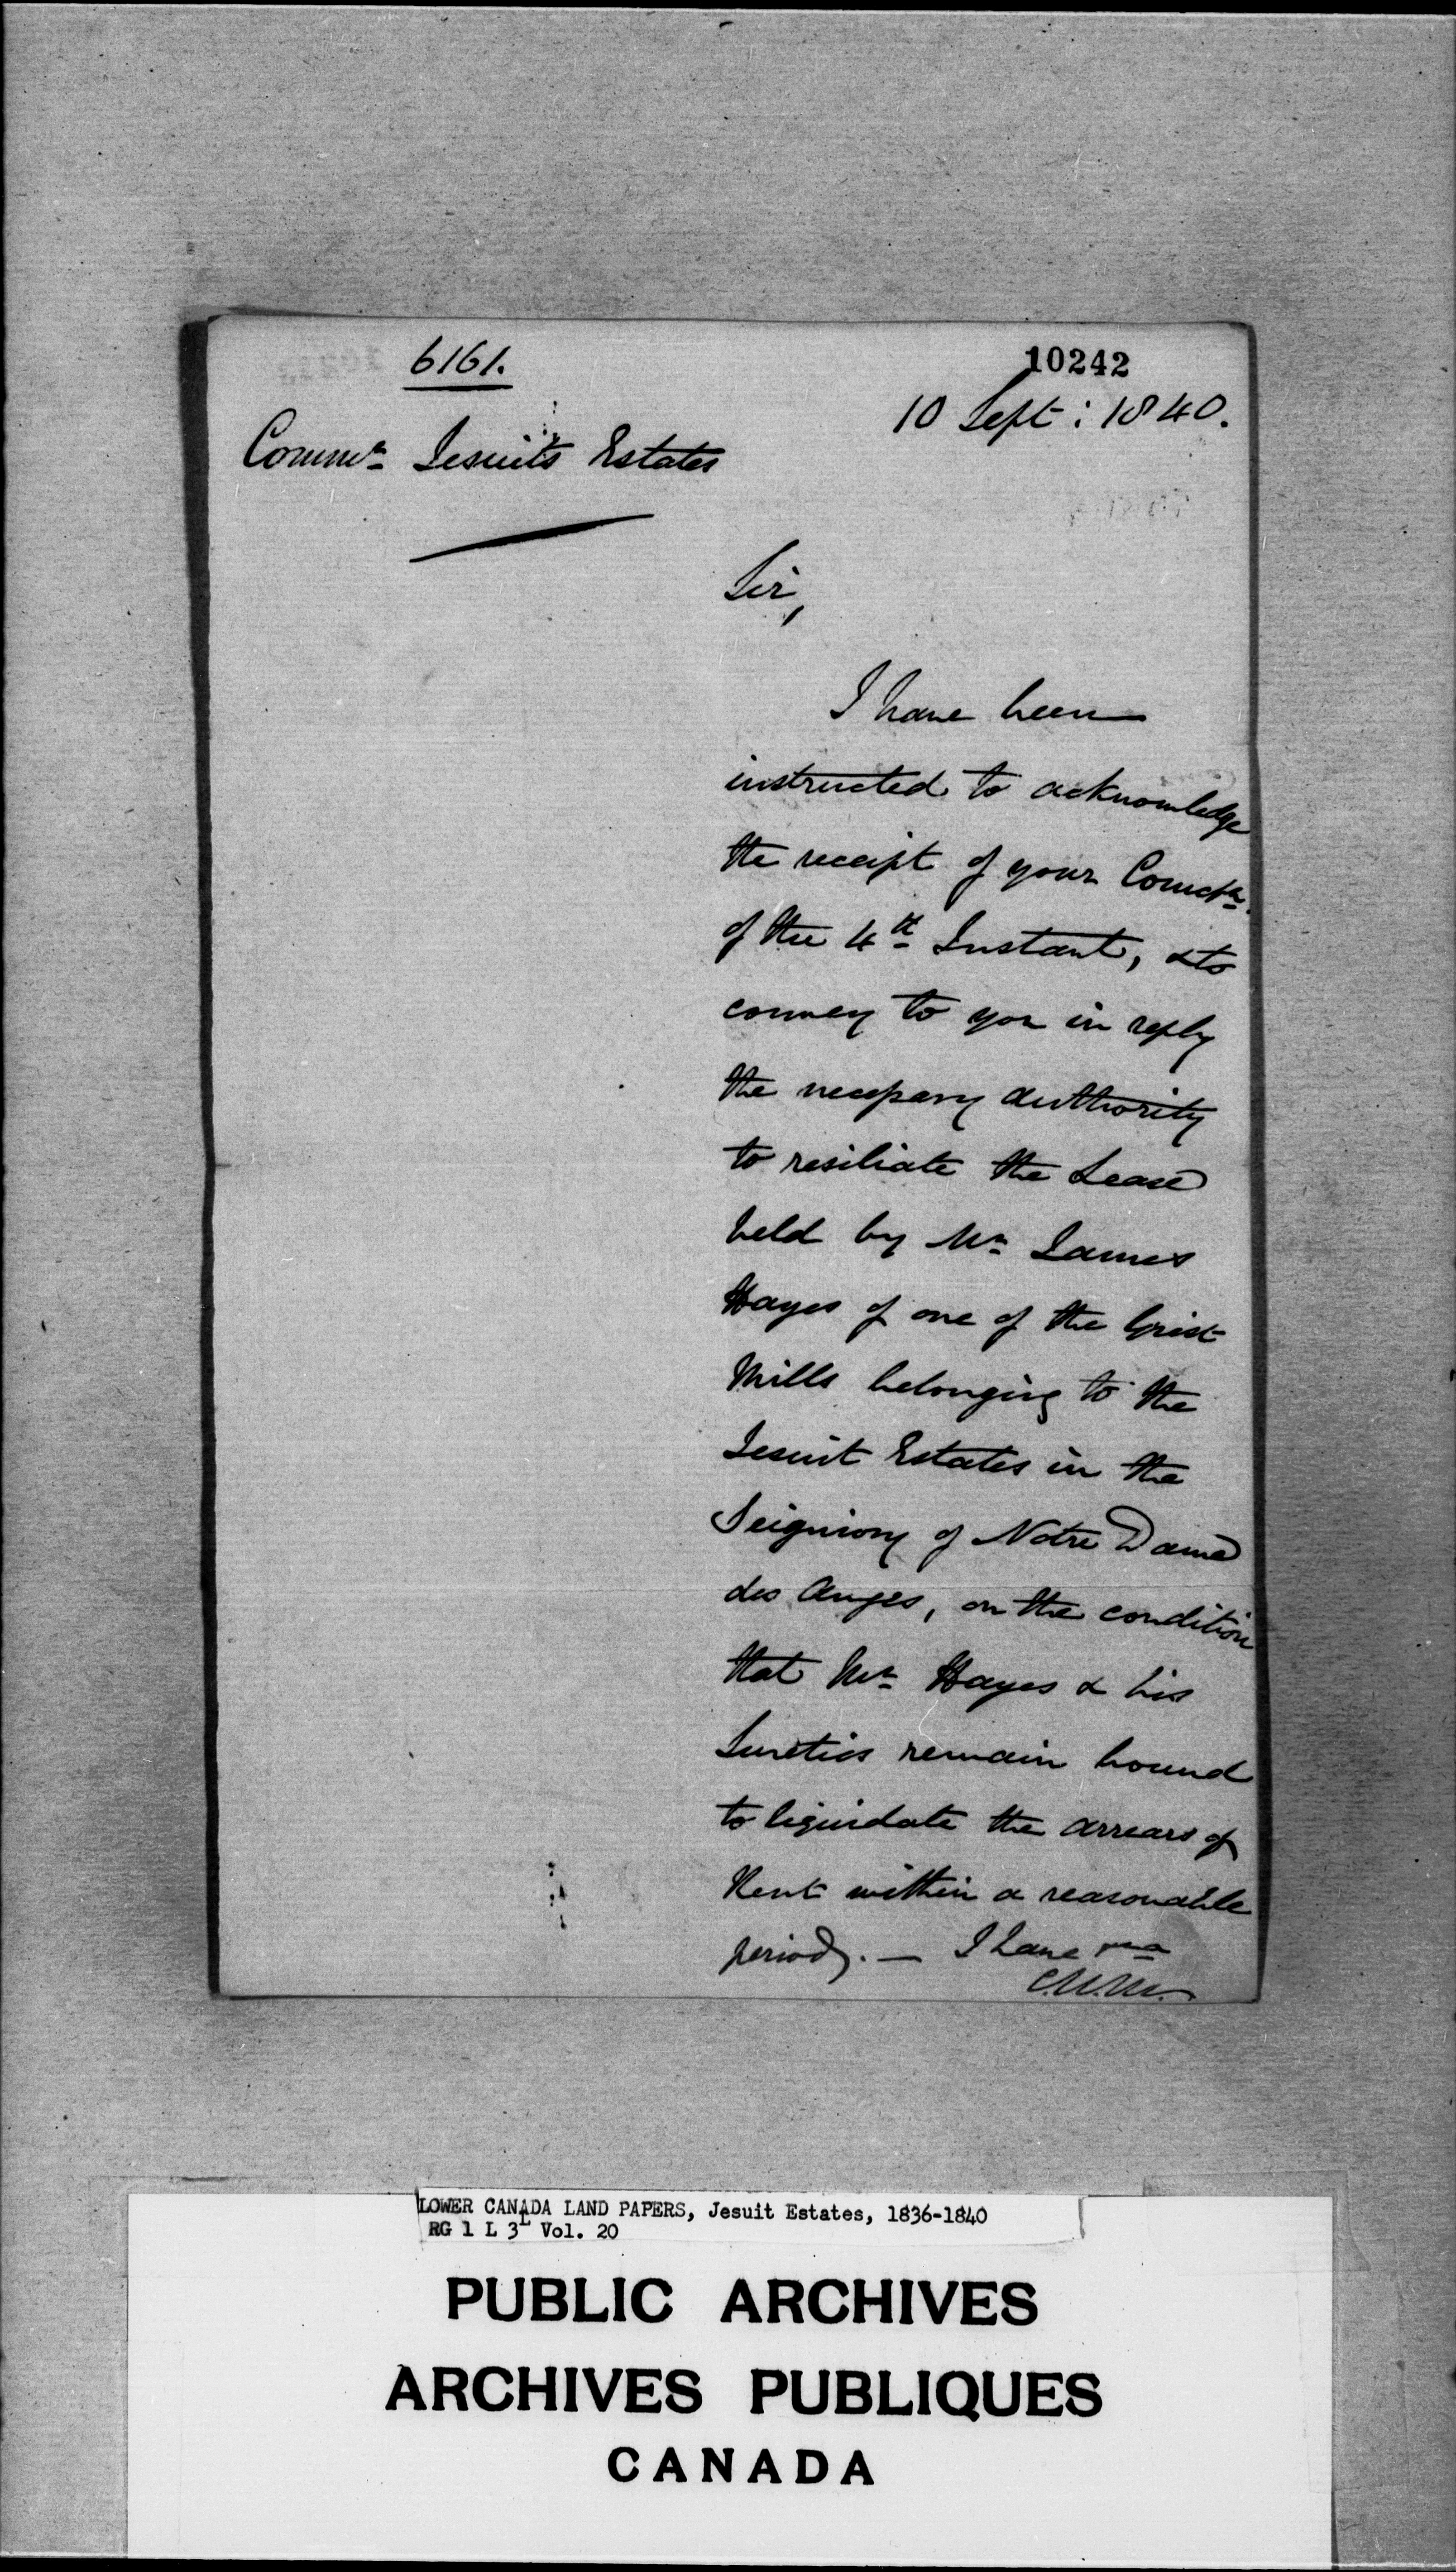 6161.
10242
10 Sept: 1840.
Commr Jesuits Estates
Sir,
I have been
instructed to acknowledge
the receipt of your
of the 4th Instant, & to
convey to you in reply
the necessary authority
to resiliate the Lease
held by Mr James
Hayes of one of the Grist
Mills belonging to the
Jesuit Estates in the
Seigniory of Notre Dame
des Anges, on the condition
that Mr Hayes & his
Sureties remain bound
to liquidate the arrears of
Rent within a reasonable
period. — I have
LOWER CANADA LAND PAPERS, Jesuit Estates, 1836-1840
RG 1 L 3L Vol. 20
PUBLIC ARCHIVES
ARCHIVES PUBLIQUES
CANADA